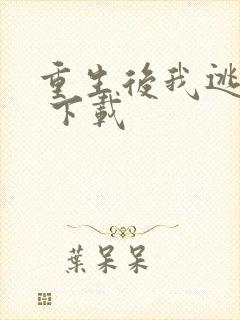 重生後我逃
下載
葉呆呆